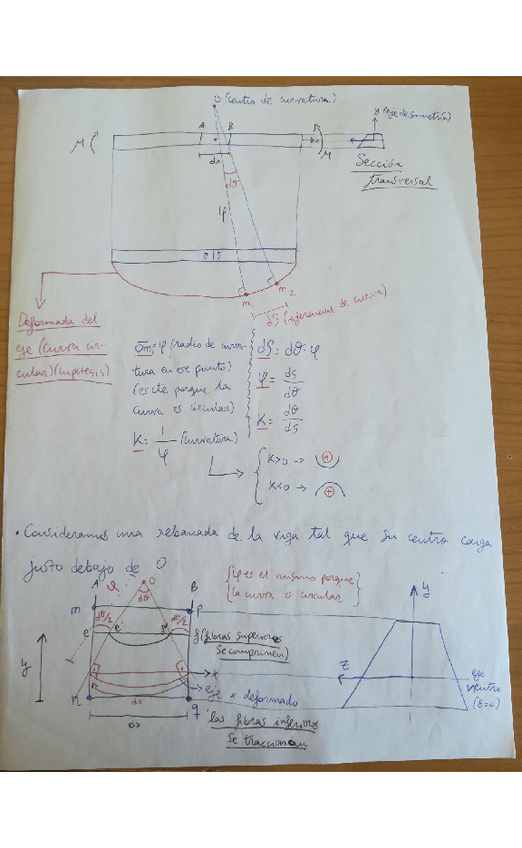 O (centro de curvatura)
y (eje de simetría)
A B
M
x
M
dx
dθ
Sección
transversal
φ
m₁ m₂
dS (diferencial de curva)
Deformada del
eje (curva cir-
cular) (hipótesis)
Om₁ = φ (radio de curva-
tura en ese punto)
(es cte porque la
curva es circular)
K = 1/φ (curvatura)
dS = dθ · φ
φ = dS/dθ
K = dθ/dS
K>0 → +
K<0 → +
• Consideramos una rebanada de la viga tal que su centro caiga
justo debajo de O
A φ O B
dθ
(φ es el mismo porque
la curva es circular)
y
m p
dθ/2 dθ/2
e e' f' f (fibras superiores
se comprimen)
y
z
x
eje
neutro
(ε=0)
eje x deformado
n dx q
dx
las fibras inferiores
se traccionan